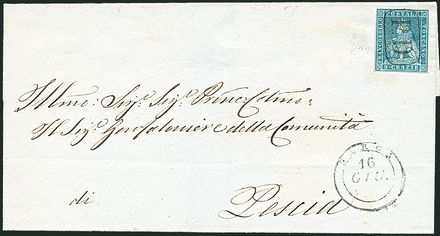 FRANCOBOLLO POSTALE TOSCANO
2 CRAZIE
Illmo: Sigr. Sigr. Prone Colmo:
Il Sigr. Gonfaloniere della Comunità
16
GIU.
di
Pescia